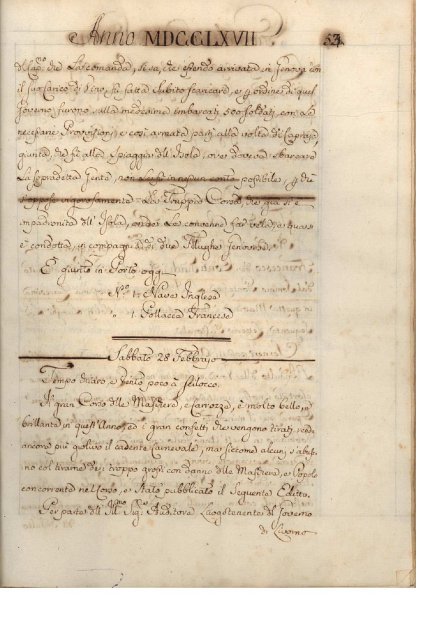 Anno MDCCLXVII.
53
del Cap.º che La comanda, si sa, che essendo arrivata in Genova con
il suo Carico di fu fatta subito scaricare, e p ordine di quel
Governo furono sulla medesima imbarcati 500 soldati, con Le
Provvisioni, e così armata partì alla volta di Capraja,
giunta, che fù alle spiaggie dell'Isola, ove doveva sbarcare
La sopradetta Gente, non Le fù in nessun conto possibile, p che
s'oppose vigorosamente La Truppa Corsa, che già si è
impadronita dell'Isola, onde Le convenne far vela, e quà si
è condotta, in compagnia di due Filughe Genovesi.
E' giunto in Porto oggi
N.º 1: Nave Inglese
" 1: Pollacca Francese
Sabbato 28 Febbrajo
Tempo chiaro e vento poco à Scilocco.
Il gran Corso delle Maschere, e Carrozze, è molto bello, e
brillante in quest'Anno, ed i gran confetti che vengono tirati, rende
ancora più giulivo il cadente Carnevale, ma siccome alcuni s'abusa-
no col tirarne dei troppo grossi con danno delle Maschere, e Popolo
concorrente nel Corso, è stato pubblicato il seguente Editto.
Per parte dell'Ill.mo Sig.re Auditore Luogotenente del Governo
di Livorno